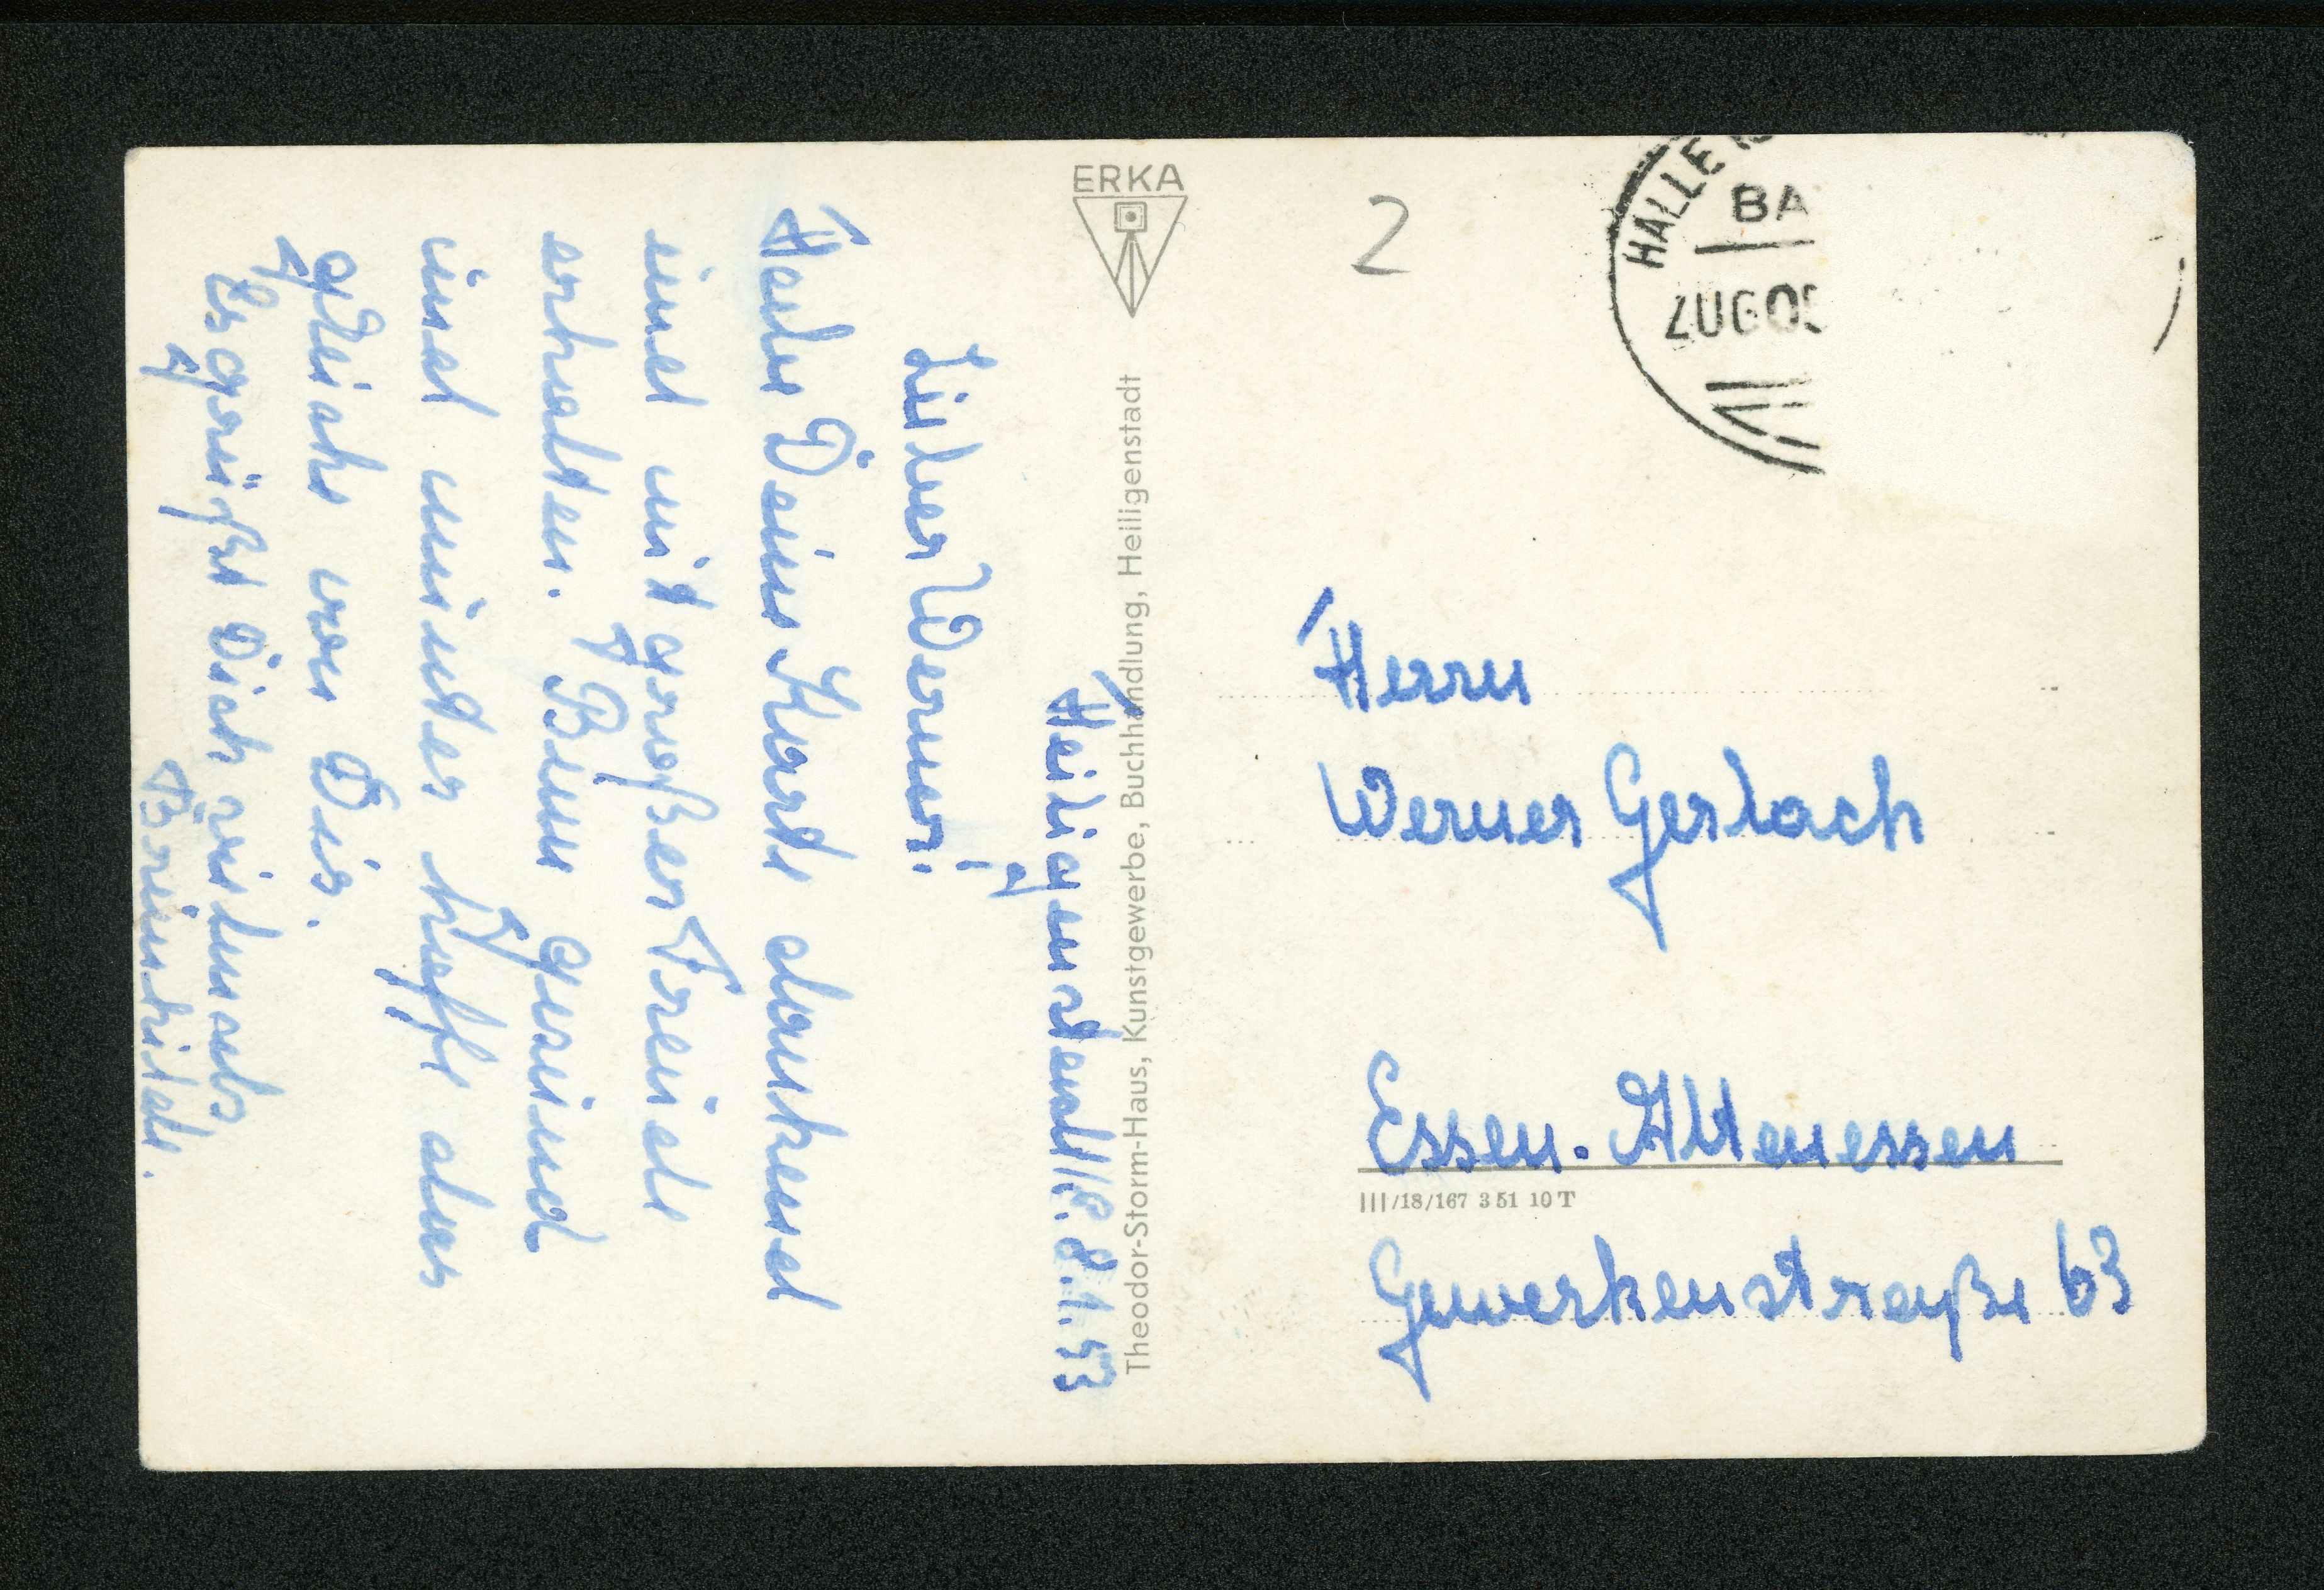 Heiligenstadt/E. 8.1.53
Lieber Werner!
Habe Deine Karte dankend
und mit großer Freude
erhalten. Bin gesund
und munter hoffe das
gleiche von Dir.
Es grüßt Dich vielmals
ERKA
Theodor-Storm-Haus, Kunstgewerbe, Buchhandlung, Heiligenstadt
2
HALLE
BA
ZUG 05
Herrn
Werner Gerlach
Essen-Altenessen
III/18/167 3 51 10 T
Gewerkenstraße 63